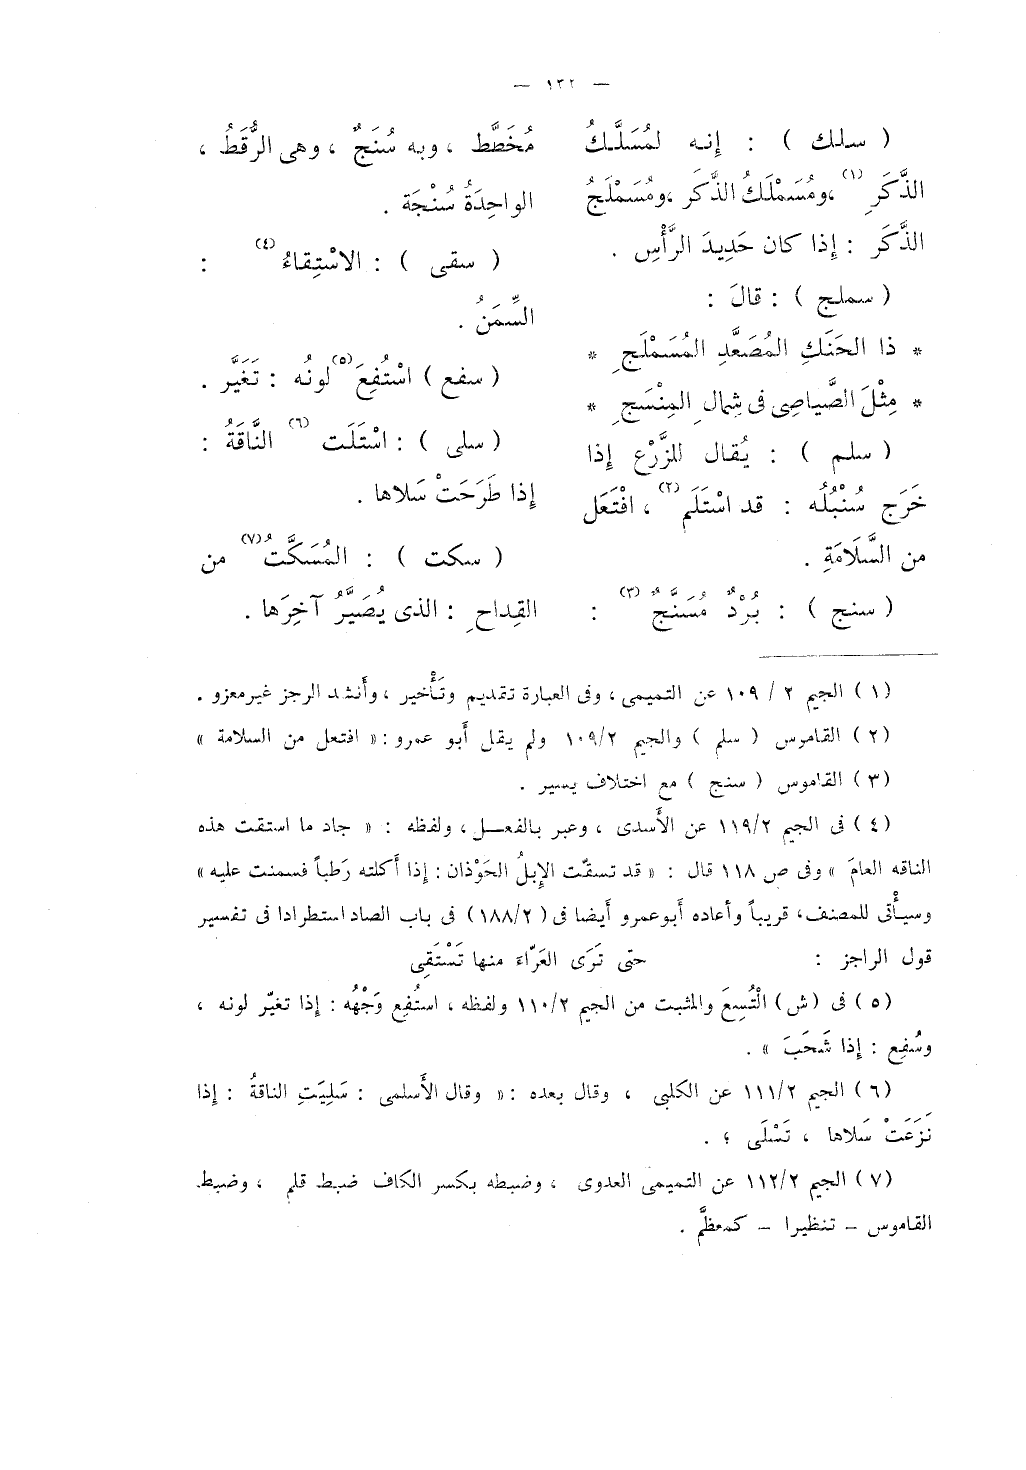 — ١٣٢ —
( سلك ) : إنه لمُسَلَّكُ
الذَّكَرِ (١) ،ومُسَمْلَكُ الذَّكَرِ ،ومُسَمْلَجُ
الذَّكَرِ : إذا كان حَدِيدَ الرَّأْسِ .
( سملج ) : قالَ :
* ذا الحَنَكِ المُصَعَّدِ المُسَمْلَجِ *
* مِثْلَ الصَّياصِى فى شِمالِ المِنْسَجِ *
( سلم ) : يُقال للزَّرْعِ إذا
خَرَج سُنْبُلُه : قد اسْتَلَم (٢) ، افْتَعَل
من السَّلَامَةِ .
( سنج ) : بُرْدٌ مُسَنَّجٌ (٣) :
مُخَطَّط ، وبه سُنَجٌ ، وهى الرُّقَطُ ،
الواحِدَةُ سُنْجَة .
( سقى ) : الاسْتِقاءُ (٤) :
السِّمَنُ .
( سفع ) اسْتُفِعَ (٥) لونُه : تَغَيَّر .
( سلى ) : اسْتَلَت (٦) النَّاقَةُ :
إذا طَرَحَتْ سَلاها .
( سكت ) : المُسَكَّتُ (٧) من
القِداحِ : الذى يُصَيَّرُ آخِرَها .
(١) الجيم ٢ / ١٠٩ عن التميمى ، وفى العبارة تقديم وتَأْخير ، وأَنشد الرجز غيرمعزو .
(٢) القاموس ( سلم ) والجيم ١٠٩/٢ ولم يقل أبو عمرو :« افتعل من السلامة »
(٣) القاموس ( سنج ) مع اختلاف يسير .
(٤) فى الجيم ١١٩/٢ عن الأَسدى ، وعبر بالفعل ، ولفظه : « جاد ما استقت هذه
الناقه العامَ » وفى ص ١١٨ قال : « قد تسقّت الإِبلُ الحَوْذان : إذا أَكلته رَطباً فسمنت عليه »
وسيأْتى للمصنف ، قريباً وأعاده أبوعمرو أَيضا فى ( ١٨٨/٢ ) فى باب الصاد استطرادا فى تفسير
قول الراجز : حتى تَرَى العَرّاءَ منها تَسْتَقِى
(٥) فى (ش) الْتُسِعَ والمثبت من الجيم ١١٠/٢ ولفظه ، استُفِع وَجْهُه : إذا تغيّر لونه ،
وسُفِع : إذا شَحَبَ » .
(٦) الجيم ١١١/٢ عن الكلبى ، وقال بعده :« وقال الأَسلمى : سَلِيَتِ الناقةُ : إذا
نَزَعَتْ سَلاها ، تَسْلَى ؛ .
(٧) الجيم ١١٢/٢ عن التميمى العدوى ، وضبطه بكسر الكاف ضبط قلم ، وضبط
القاموس – تنظيرا – كمعظَّم .